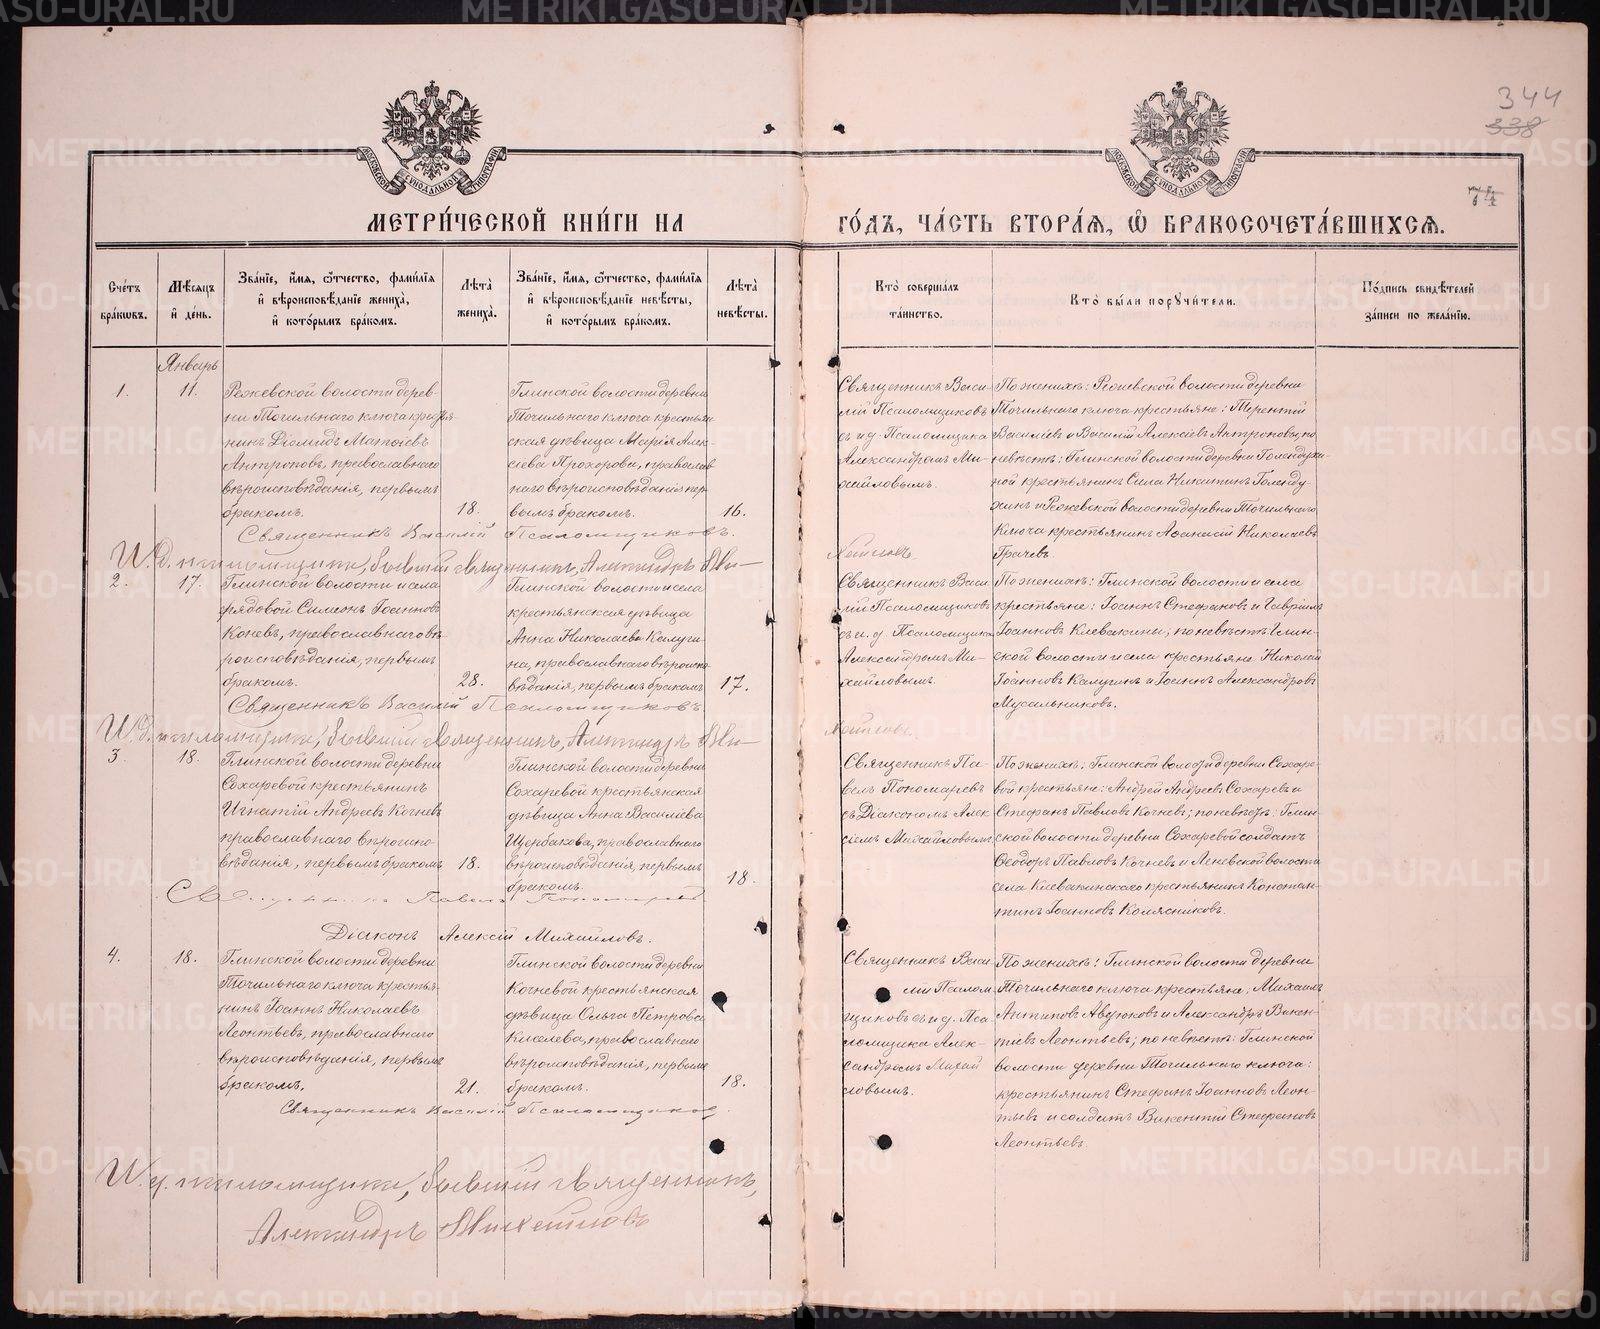 344
338
74
МОСКОВСКОЙ СѴНОДАЛЬНОЙ ТИПОГРАФІИ
МОСКОВСКОЙ СѴНОДАЛЬНОЙ ТИПОГРАФІИ
МЕТРИ́ЧЕСКОЙ КНИ́ГИ НА ГО́ДЪ, ЧА́СТЬ ВТОРА́Ѧ, Ѽ БРАКОСОЧЕТА́ВШИХСѦ.
Сче́тъ бра́кѡвъ.
Мѣ́сѧцъ и҆ де́нь.
Зва́нїе, и҆́мѧ, ѻ҆́тчество, фами́лїѧ и҆ вѣроисповѣ́данїе жениха̀, и҆ кото́рымъ бра́комъ.
Лѣта̀ жениха̀.
Зва́нїе, и҆́мѧ, ѻ҆́тчество, фами́лїѧ и҆ вѣроисповѣ́данїе невѣ́сты, и҆ кото́рымъ бра́комъ.
Лѣта̀ невѣ́сты.
Кто̀ соверша́лъ та́инство.
Кто̀ бы́ли порꙋчи́тели.
По́дпись свидѣ́телей за́писи по жела́нїю.
Январь
1.
11.
Режевской волости дерев-
ни Точильнаго ключа кресть-
нинъ Діомидъ Матѳіевъ
Антроповъ, православнаго
вѣроисповѣданія, первымъ
бракомъ.
18.
Глинской волости деревни
Точильнаго ключа крестьян
ская дѣвица Марія Алек-
сѣева Прохорова, православ
наго вѣроисповѣданія пер-
вымъ бракомъ.
16.
Священникъ Васи-
лій Псаломщиковъ
съ и. д. Псаломщика
Александромъ Ми-
хайловымъ.
По женихѣ: Режевской волости деревни
Точильнаго ключа крестьяне: Терентій
Василіевъ и Василій Алексіевъ Антроповы, по
невѣстѣ: Глинской волости деревни Голендухи-
ной крестьянинъ Сила Никитинъ Голенду-
хинъ и Режевской волости деревни Точильнаго
Ключа крестьянинъ Аѳанасій Николаевъ
Грачевъ.
Священникъ Василій Псаломщиковъ.
И. д. псаломщика, бывшій священникъ, Александръ
2.
17.
Глинской волости и села
рядовой Симеонъ Іоанновъ
Коневъ, православнаго вѣ-
роисповѣданія, первымъ
бракомъ.
28.
Глинской волости и села
крестьянская дѣвица
Анна Николаева Калуги-
на, православнаго вѣроиспо-
вѣданія, первымъ бракомъ
17.
Священникъ Васи-
лій Псаломщиковъ
съ и. д. Псаломщика
Александромъ Ми-
хайловымъ.
По женихѣ: Глинской волости и села
крестьяне: Іоаннъ Стефановъ и Гавріилъ
Іоанновъ Клевакины; по невѣстѣ: Глин-
ской волости и села крестьяне Николай
Іоанновъ Калугинъ и Іоаннъ Александровъ
Мусальниковъ.
Священникъ Василій Псаломщиковъ.
И. д. псаломщика, бывшій священникъ, Александръ
3.
18.
Глинской волости деревни
Сохаревой крестьянинъ
Игнатій Андреевъ Кочневъ
православнаго вѣроиспо-
вѣданія, первымъ бракомъ
18.
Глинской волости деревни
Сохаревой крестьянская
дѣвица Анна Василіева
Щербакова, православнаго
вѣроисповѣданія, первымъ
бракомъ.
18.
Священникъ Па-
велъ Пономаревъ
съ Діакономъ Алек-
сіемъ Михайловымъ
По женихѣ: Глинской волости деревни Сохаре-
вой крестьяне: Андрей Андреевъ Сохаревъ и
Стефанъ Павловъ Кочневъ; по невѣстѣ: Глин-
ской волости деревни Сохаревой солдатъ
Ѳеодоръ Павловъ Кочневъ и Леневской волости
села Клевакинскаго крестьянинъ Констан-
тинъ Іоанновъ Колясниковъ.
Священникъ Павелъ Пономаревъ
Діаконъ Алексій Михайловъ.
4.
18.
Глинской волости деревни
Точильнаго ключа крестья-
нинъ Іоаннъ Николаевъ
Леонтьевъ, православнаго
вѣроисповѣданія, первымъ
бракомъ.
21.
Глинской волости деревни
Кочневой крестьянская
дѣвица Ольга Петрова
Киселева, православнаго
вѣроисповѣданія, первымъ
бракомъ.
18.
Священникъ Васи
лій Псалом
щиковъ съ и д. Пса-
ломщика Алек-
сандромъ Михай
ловымъ.
По женихѣ: Глинской волости деревни
Точильнаго ключа крестьяне; Михаилъ
Антиповъ Авдюковъ и Александръ Викен-
тіевъ Леонтьевъ; по невѣстѣ: Глинской
волости деревни Точильнаго ключа:
крестьянинъ Стефанъ Іоанновъ Леон-
тьевъ и солдатъ Викентій Стефановъ
Леонтьевъ.
Священникъ Василій Псаломщиковъ.
И. д. псаломщика, бывшій священникъ,
Александръ
METRIKI.GASO-URAL.RU